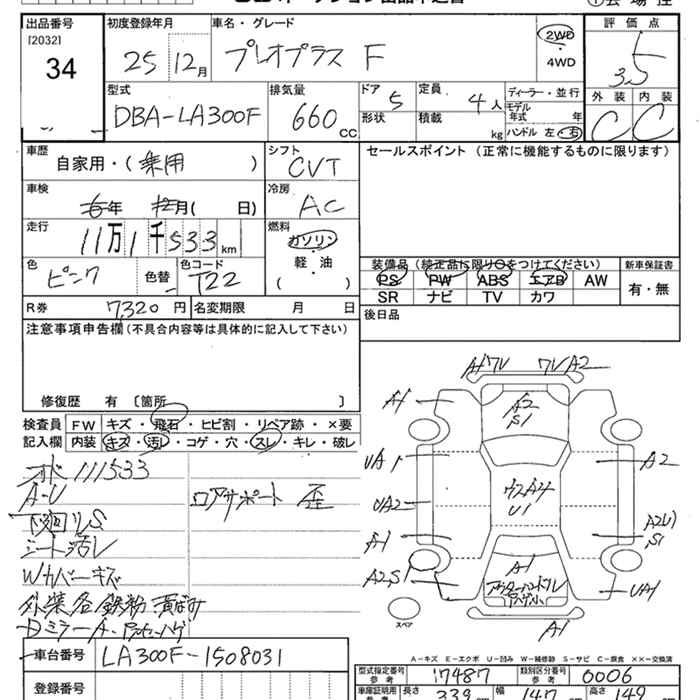 出品番号 初度登録年月 車名・グレード 評価点
[2032]
34 25年12月 プレオプラス F 2WD・4WD 3.5
型式 排気量 ドア 定員 ディーラー・並行
DBA-LA300F 660cc 5 4人 モデル年式 年 外装 内装
形状 積載 kg ハンドル 左・右 C C
車歴 シフト セールスポイント（正常に機能するものに限ります）
自家用・（乗用） CVT
車検 冷房
6年 12月（ 日） AC
走行 燃料
11万1千533km ガソリン
軽・油
（ ）
色 ピンク 色替 色コード T22
装備品（純正品に限り○をつけてください） 新車保証書
PS PW ABS エアB AW 有・無
SR ナビ TV カワ
R券 7,320円 名変期限 月 日
後日品
注意事項申告欄（不具合内容等は具体的に記入して下さい）
修復歴 有〔箇所 〕
検査員記入欄 FW キズ・飛石・ヒビ割・リペア跡・×要
内装 キズ・汚レ・コゲ・穴・スレ・キレ・破レ
オド 111533
A-U ロアサポート 歪
下廻リS
シート汚レ
Wカバーキズ
外装各鉄粉
DミラーA
A1 A2
A1 A2 S1
UA1 A2
UA2 ウスA4 U1
A1 S1
A2,S1 A1 UA1
A1
スペア
A-キズ E-エクボ U-凹み W-補修跡 S-サビ C-腐食 ××-交換済
車台番号 LA300F-1508031
登録番号
型式指定番号 参考 17487 類別区分番号 参考 0006
車庫証明用 参考 長さ 339 幅 147 高さ 149